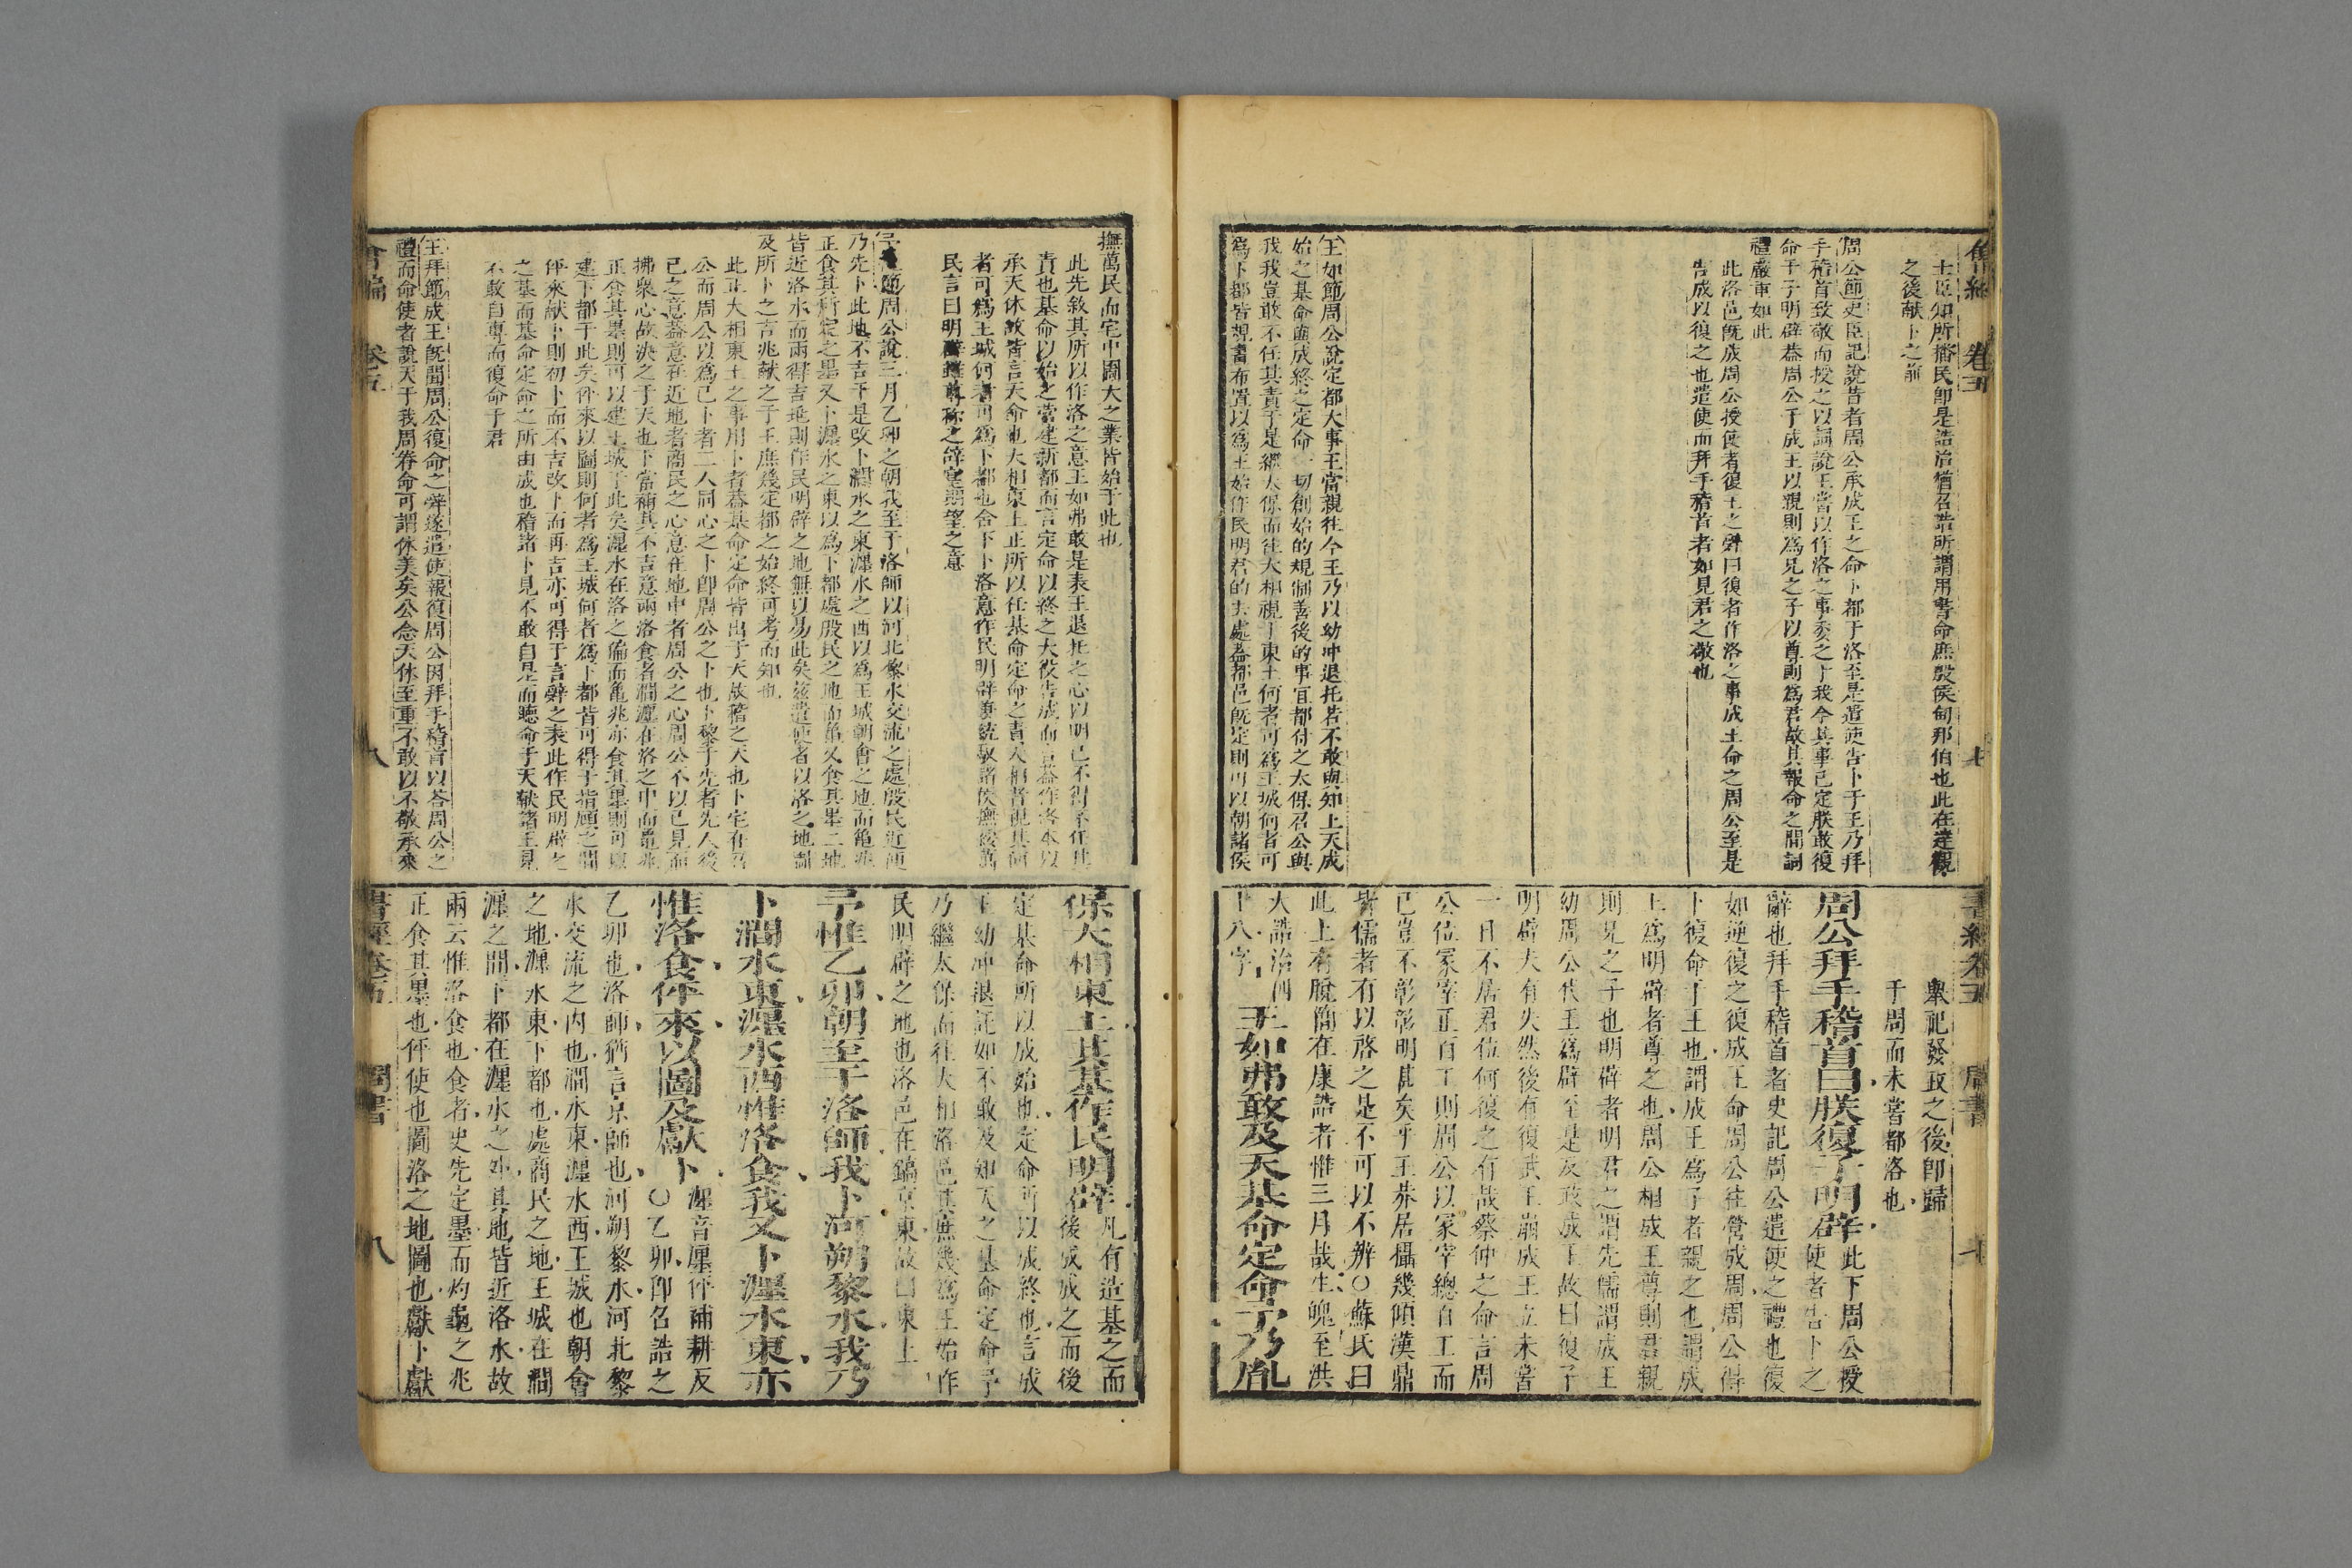 士臣知所播民卽是誥治猶召誥所謂用書命庶殷侯甸邦伯也此在達觀
之後献卜之前
周公節史臣記說昔者周公承成王之命卜都于洛至是遣使告卜于王乃拜
手稽首致敬而授之以詞說王嘗以作洛之事委之于我今其事已定朕敢復
命于子明辟葢周公于成王以親則爲兄之子以尊則爲君故其報命之間詞
禮嚴重如此
此洛邑旣成周公授使者復王之辭曰復者作洛之事成王命之周公至是
告成以復之也遣使而拜手稽首者如見君之敬也
王如節周公說定都大事王當親往今王乃以幼冲退托若不敢與知上天成
始之基命與成終之定命一切創始的規制善後的事宜都付之太保召公與
我我豈敢不任其責于是繼太保而往大相視于東土何者可爲王城何者可
爲下都皆規畫布置以爲王始作民明君的去處葢都邑旣定則可以朝諸侯
書經卷五 周書 七
舉祀發政之後卽歸
于周而未嘗都洛也
周公拜手稽首曰朕復子明辟此下周公授使者告卜之
辭也拜手稽首者史記周公遣使之禮也復
如逆復之復成王命周公往營成周周公得
卜復命于王也謂成王爲子者親之也謂成
王爲明辟者尊之也周公相成王尊則君親
則兄之子也明辟者明君之謂先儒謂成王
幼周公代王爲辟至是反政成王故曰復子
明辟夫有失然後有復武王崩成王立未嘗
一日不居君位何復之有哉蔡仲之命言周
公位冡宰正百工則周公以冡宰總百工而
已豈不彰彰明甚矣乎王莽居攝幾傾漢鼎
皆儒者有以啓之是不可以不辨○蘇氏曰
此上有脫簡在康誥者惟三月哉生魄至洪
大誥治四十八字王如弗敢及天基命定命予乃胤
撫萬民而宅中圖大之業皆始于此也
此先敘其所以作洛之意王如弗敢是表王退托之心以明己不得不任其
責也基命以始之當建新都而言定命以終之大役告成而言葢作洛本以
承天休故皆言天命也大相東土正所以任基命定命之責大相者視其何
者可爲王城何者可爲下都也合下卜洛意作民明辟兼統馭諸侯撫綏萬
民言曰明辟雖尊称之辞寔期望之意
予惟節周公說三月乙卯之朝我至于洛師以河北黎水交流之處殷民近便
乃先卜此地不吉于是改卜澗水之東瀍水之西以爲王城朝會之地而龜兆
正食其所定之墨又卜瀍水之東以爲下都處殷民之地而龜又食其墨二地
皆近洛水而兩得吉兆則作民明辟之地無以易此矣兹遣使者以洛之地圖
及所卜之吉兆献之于王庶幾定都之始終可考而知也
此正大相東土之事用卜者葢基命定命皆出于天故稽之天也卜宅在召
公而周公以爲己卜者二人同心之卜卽周公之卜也卜黎于先者先人後
己之意葢意在近地者商民之心意在地中者周公之心周公不以己見而
拂衆心故决之于天也下當補其不吉意兩洛食者澗瀍在洛之中而龜兆
正食其墨則可以建王城于此矣瀍水在洛之偏而龜兆亦食其墨則可以
建下都于此矣伻來以圖則何者爲王城何者爲下都皆可得于指顧之間
伻來献卜則初卜而不吉改卜而再吉亦可得于言辭之表此作民明辟之
之基而基命定命之所由成也稽諸卜見不敢自是而聽命于天献諸王見
不敢自專而復命于君
王拜節成王旣聞周公復命之辞遂遣使報復周公因拜手稽首以答周公之
禮而命使者說天于我周眷命可謂休美矣公念天休至重不敢以不敬承來
保大相東土其基作民明辟凡有造基之而後成成之而後
定基命所以成始也定命所以成終也言成
王幼冲退託如不敢及知天之基命定命予
乃繼太保而往大相洛邑其庶幾爲王始作
民明辟之地也洛邑在鎬京東故曰東土
予惟乙卯朝至于洛師我卜河朔黎水我乃
卜澗水東瀍水西惟洛食我又卜瀍水東亦
惟洛食伻來以圖及獻卜瀍音厘伻補耕反○乙卯卽召誥之
乙卯也洛師猶言京師也河朔黎水河北黎
水交流之内也澗水東瀍水西王城也朝會
之地瀍水東下都也處商民之地王城在澗
瀍之間下都在瀍水之外其地皆近洛水故
兩云惟洛食也食者史先定墨而灼龜之兆
正食其墨也伻使也圖洛之地圖也獻卜獻
書經卷五 周書 八